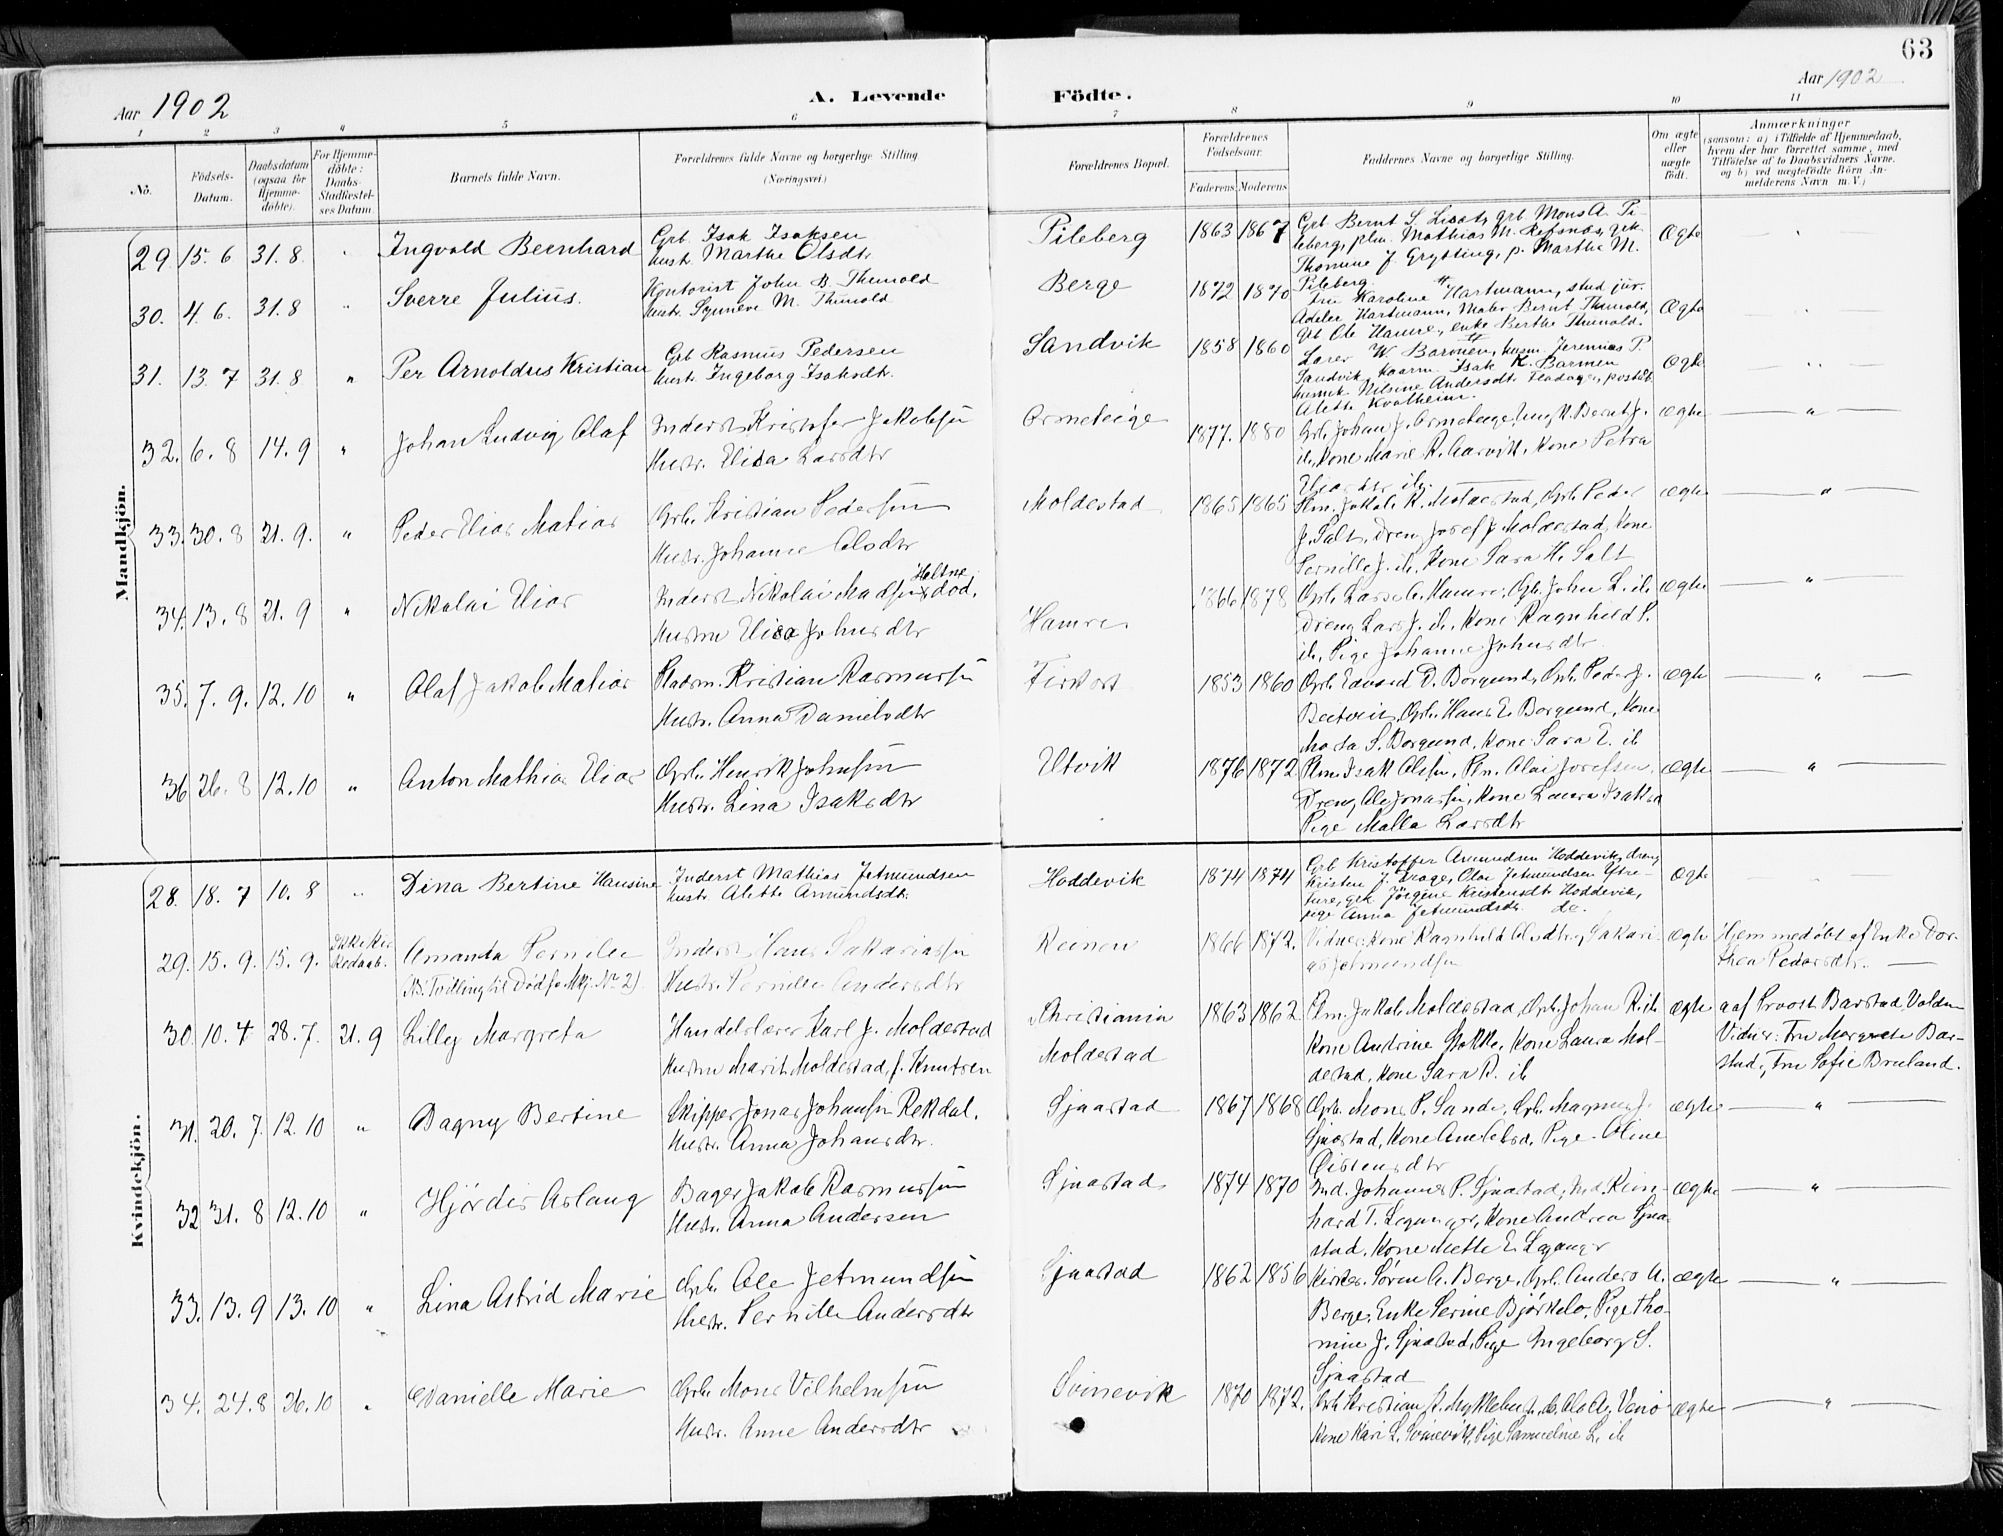 63
Aar 1902
A. Levende
Födte.
Aar 1902
1 2 3 4 5 6 7 8 9 10 11
No.
Födsels-
Datum.
Daabsdatum
(ogsaa för
Hjemme-
döbte).
For Hjemme-
döbte:
Daabs-
Stadfæstel-
ses Datum.
Barnets fulde Navn.
Forældrenes fulde Navne og borgerlige Stilling
(Næringsvei.)
Forældrenes Bopæl.
Forældrenes
Födselsaar.
Faderens. Moderens.
Faddernes Navne og borgerlige Stilling.
Om ægte
eller
uægte
födt.
Anmærkninger
(saasom: a) i Tilfælde af Hjemmedaab,
hvem der har forrettet samme, med
Tilföielse af to Daabsvidners Navne,
og b) ved uægtefödte Börn An-
melderens Navn m. V.)
Mandkjön.
29. 15. 6 31. 8 " Ingvald Bernhard
Grb. Isak Isaksen
Hustr. Marthe Olsdtr
Pileberg 1863 1867
Grb Bernt S. Liset, grb Mons A. Pi-
leberg, plm. Mathias M. Refsnæs, gek
Thomine J. Grytting, p. Marthe M.
Pileberg
Ægte
30. 4. 6. 31. 8 " Sverre Julius.
Kontorist John B. Thunold
Hustr. Synneve M. Thunold
Berge 1872 1870
Fru Karoline Hartmann, stud jur.
Adeler Hartmann, Maler Bernt Thunold,
Grb Ole Hamre, enke Berthe Thunold.
Ægte
31. 13. 7 31. 8 " Per Arnoldus Kristian
Grb Rasmus Pedersen
Hustr. Ingeborg Isaksdtr.
Sandvik 1858 1860
Lærer W. Barmen, husm. Jeremias P.
Sandvik, Isak K. Barmen
Nilsine Andersdtr
Alette Kvalheim.
Ægte
32. 6. 8 14. 9 " Johan Ludvig Olaf
Inderst Kristofer Jakobsen
Hustr. Elisa Larsdtr
Ormeteige 1877. 1880
Grb. Johan J. Ormeteige, Ung K. Bernt J.
ib, Kone Marie R. Aarvik, Kone Petra
Eliasdtr ib.
Ægte "
33. 30. 8 21. 9. " Peder Elias Matias
Grb. Kristian Pedersen
Hustr. Johanne Olsdtr
Moldestad 1865 1865
Plm. Jakob K. Moldestad, Grb. Peder
J. Salt, Dreng Josef J. Moldestad, Kone
Pernille J. ib, Kone Sara H. Salt
Ægte "
34. 13. 8 21. 9 " Nikolai Elias
Inderst Nikolai Madsen Holtne død.
Hustru Elisa Johnsdtr
Hamre 1866 1878
Grb. Lars O. Hamre, Grb. John L. ib
Dreng Lars J. ib, Kone Ragnhild P.
ib, Pige Johanne Johnsdtr
Ægte "
35. 7. 9. 12. 10 " Olaf Jakob Matias
Pladsm. Kristian Rasmussen
Hustr. Anna Danielsdtr
Firskort 1853 1860
Grb. Edvard D. Borgund, Grb. Peder J.
Beitveit, Grb. Hans E. Borgund, Kone
Marta S. Borgund, Kone Sara E. ib
Ægte "
36 26. 8 12. 10 " Anton Mathias Elias
Grb. Henrik Johnsen
Hustr. Lina Isaksdtr
Utvik 1876 1872
Plm. Isak Olsen, Plm. Olai Josefsen,
Dreng Ole Jonassen, Kone Laura Isaksd
Pige Malla Larsdtr
Ægte "
Kvindekjön.
28. 18. 7 10. 8 " Dina Bertine Hansine
Inderst Mathias Jetmundsen
Hustr. Alette Amundsdtr.
Hoddevik 1874 1874
Grb Kristoffer Amundsen Hoddevik, dreng
Kristen J. Drage, Olai Jetmundsen
gek Jørgine Kristensdtr Hoddevik,
pige Anna Jetmundsdtr do.
Ægte
29. 15. 9. 15. 9. Ikke Kir-
kedaab. Amanda Pernille
(NB. Tvilling til Dødfø. Mkj. No 2)
Inderst Hans Sakariassen
Hustr. Pernille Andersdtr
Reinen 1866 1872.
Vidner: Kone Ragnhild Olsdtr, Sakari-
as Jetmundsen
Ægte
Hjemmedøbt af Enke Dor-
thea Pedersdtr.
30. 10. 4 28. 7. 21. 9 Lilly Margreta
Handelslærer Karl J. Moldestad
Hustru Marit Moldestad, f. Knutsen
Christiania
Moldestad
1863 1862
Plm. Jakob Moldestad, Grb. Johan R. ib
Kone Andrine Stokke, Kone Laura Mol-
destad, Kone Sara R. ib
Ægte
aaf Provst Barstad, Volden
Vidner: Fru Margrete Bar-
stad, Fru Sofie Bruland.
31. 20. 7. 12. 10 " Dagny Bertine
Skipper Jonas Johansen Rekdal.
Hustr. Anna Johansdtr.
Sjaastad 1867 1868
Grb. Mons P. Sande, Grb. Magnus J.
Sjaastad, Kone Pige Oline
Eistensdtr
ægte "
32 31. 8 12. 10 " Hjørdis Aslaug
Bager Jakob Rasmussen
Hustr. Anna Andersen
Sjaastad 1874 1870
Ind. Johannes P. Sjaastad, Ind. Rein-
hard T. Leganger, Kone Andrea Sjaa-
stad, Kone Mette E. Leganger
Ægte "
33. 13. 9 13. 10 " Lina Astrid Marie
Grb. Ole Jetmundsen
Hustr. Pernille Andersdtr
Sjaastad 1862 1856
Kirkes. Søren A. Berge, Grb. Anders A.
Berge, Enke Serine Bjørkelo, Pige Tho-
mine J. Sjaastad, Pige Ingeborg S.
Sjaastad
ægte "
34. 24. 8 26. 10 " Danielle Marie
Grb. Mons Vilhelmsen
Hustr. Anne Andersdtr
Svinevik 1870 1872.
Grb. Kristian K. Myklebust, Ole A. Venø
Kone Kari L. Svinevik, Pige Samueline L. ib
Ægte "